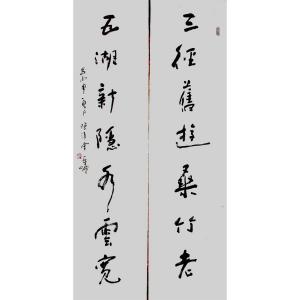 三徑舊遊桑竹老
五湖新隱水雲寬